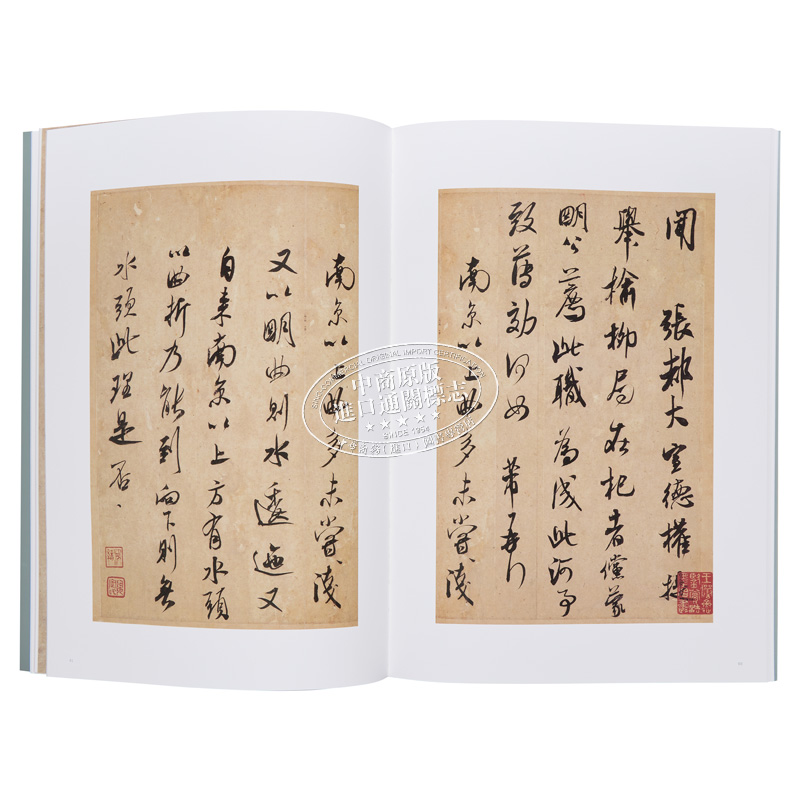 聞 張都大宣德權提
舉榆柳局在杞者儻蒙
明公薦此職為成此河事
致薄効何如 芾再行
南京以上曲多未嘗淺
南京以上曲多未嘗淺
又以明曲則水逶迤又
自來南京以上方有水頭
以曲折乃能到向下則無
水頭此理是否
中商原版
進口通關標志
SINCE 1994